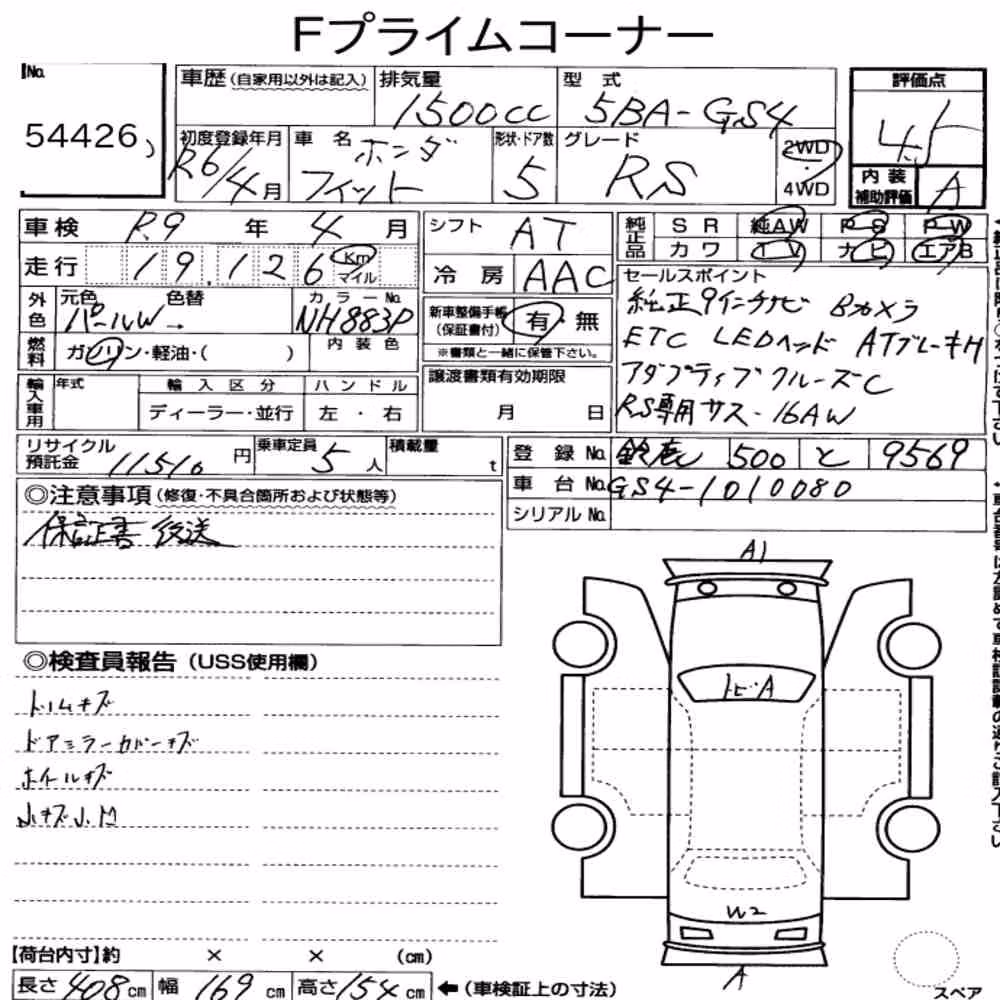 Fプライムコーナー
No.
54426
車歴(自家用以外は記入)
排気量
1500cc
型式
5BA-GS4
評価点
4.5
初度登録年月
R6/4月
車名
ホンダ
フィット
形状・ドア数
5
グレード
RS
2WD
・
4WD
内装
補助評価
A
車検 R.9年 4月
走行 19.126 Km
マイル
シフト AT
冷房 AAC
純正品
SR 純AW PS PW
カワ TV ナビ エアB
外色
元色 色替
パールW →
カラーNo.
NH883P
燃料
ガソリン・軽油・( )
内装色
新車整備手帳
(保証書付)
有・無
※書類と一緒に保管下さい。
セールスポイント
純正9インチナビ Bカメラ
ETC LEDヘッド ATブレーキH
アダプティブクルーズC
RS専用サス・16AW
輸入車用
年式
輸入区分
ディーラー・並行
ハンドル
左・右
譲渡書類有効期限
月 日
リサイクル
預託金 11510円
乗車定員 5人
積載量
t
登録No. 鈴鹿 500 と 9569
車台No. GS4-1010080
シリアルNo.
◎注意事項(修復・不具合箇所および状態等)
保証書 後送
◎検査員報告(USS使用欄)
ドアミラーカバーキズ
ホイールキズ
A1
トビ・A
W2
A
【荷台内寸】約 × × (cm)
長さ408cm 幅169cm 高さ154cm ←(車検証上の寸法)
スペア